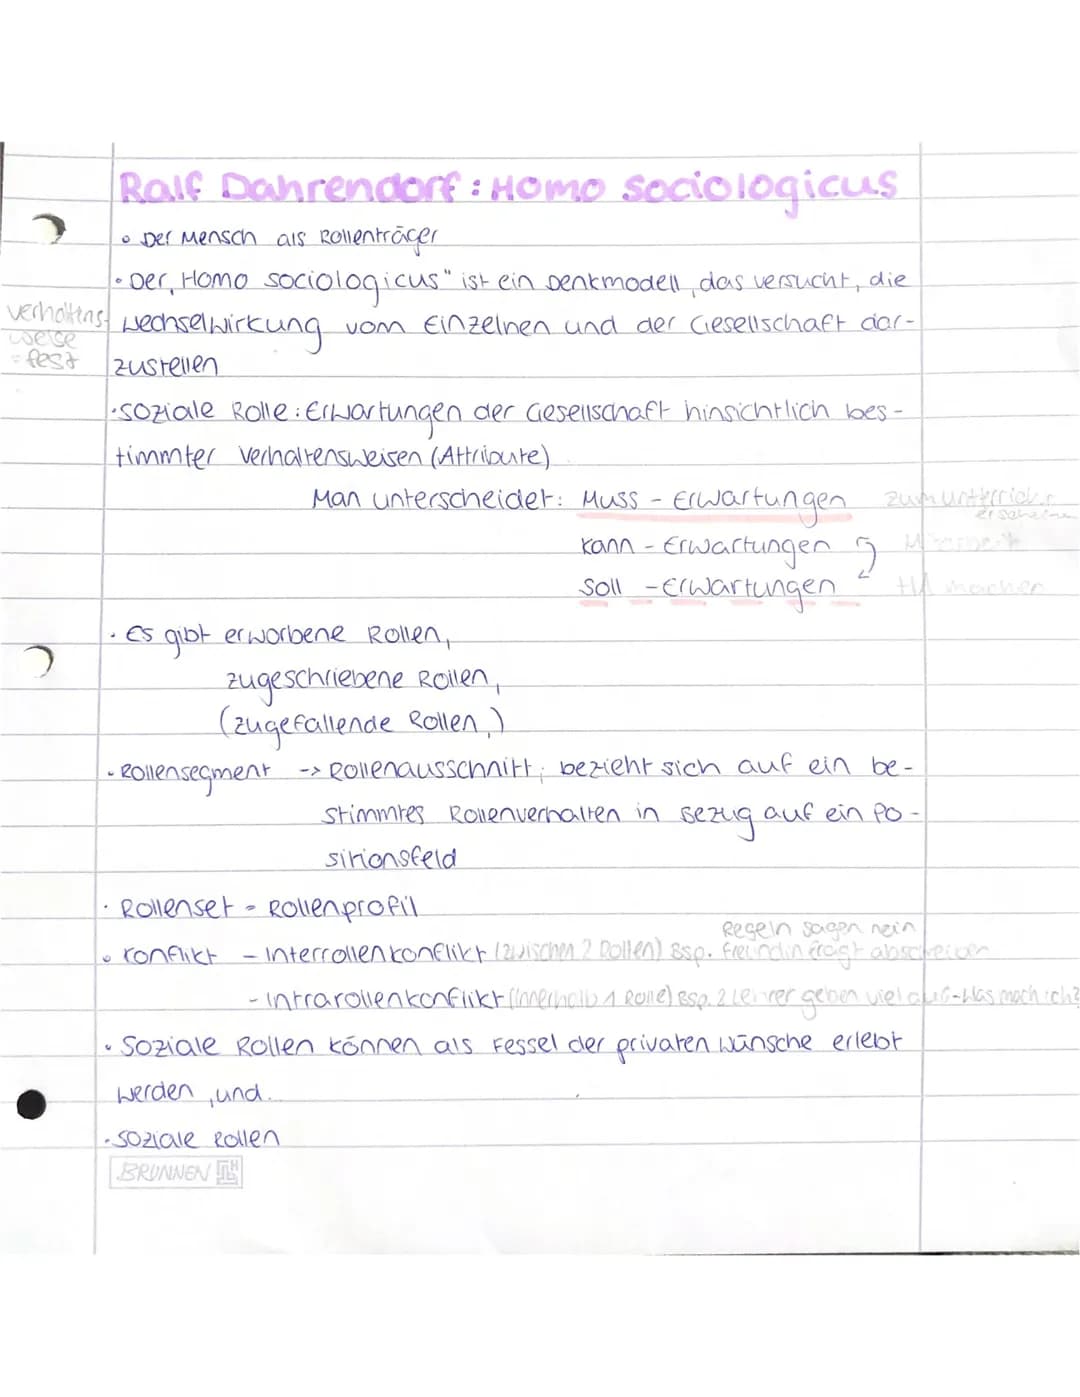 Ralf Dahrendorf: Homo sociologicus
• Der Mensch als Rollenträger
• Der „Homo sociologicus" ist ein Denkmodell, das versucht, die
Verhaltens-
weise
= fest
Wechselwirkung vom Einzelnen und der Gesellschaft dar-
zustellen
• soziale Rolle: Erwartungen der Gesellschaft hinsichtlich bes-
timmter Verhaltensweisen (Attribute)
Man unterscheidet: Muss - Erwartungen zum Unterricht
erscheinen
Kann - Erwartungen Mitarbeit
Soll - Erwartungen HA machen
• Es gibt erworbene Rollen,
zugeschriebene Rollen,
(zugefallende Rollen,)
• Rollensegment -> Rollenausschnitt; bezieht sich auf ein be-
stimmtes Rollenverhalten in Bezug auf ein Po-
sitionsfeld
• Rollenset - Rollenprofil
Regeln sagen nein
• Konflikt - Interrollenkonflikt (zwischen 2 Rollen) Bsp. Freundin fragt abschreiben
- Intrarollenkonflikt (Innerhalb 1 Rolle) Bsp. 2 Lehrer geben viel auf - Was mach ich?
• Soziale Rollen können als Fessel der privaten Wünsche erlebt
werden, und...
• soziale Rollen
BRUNNEN